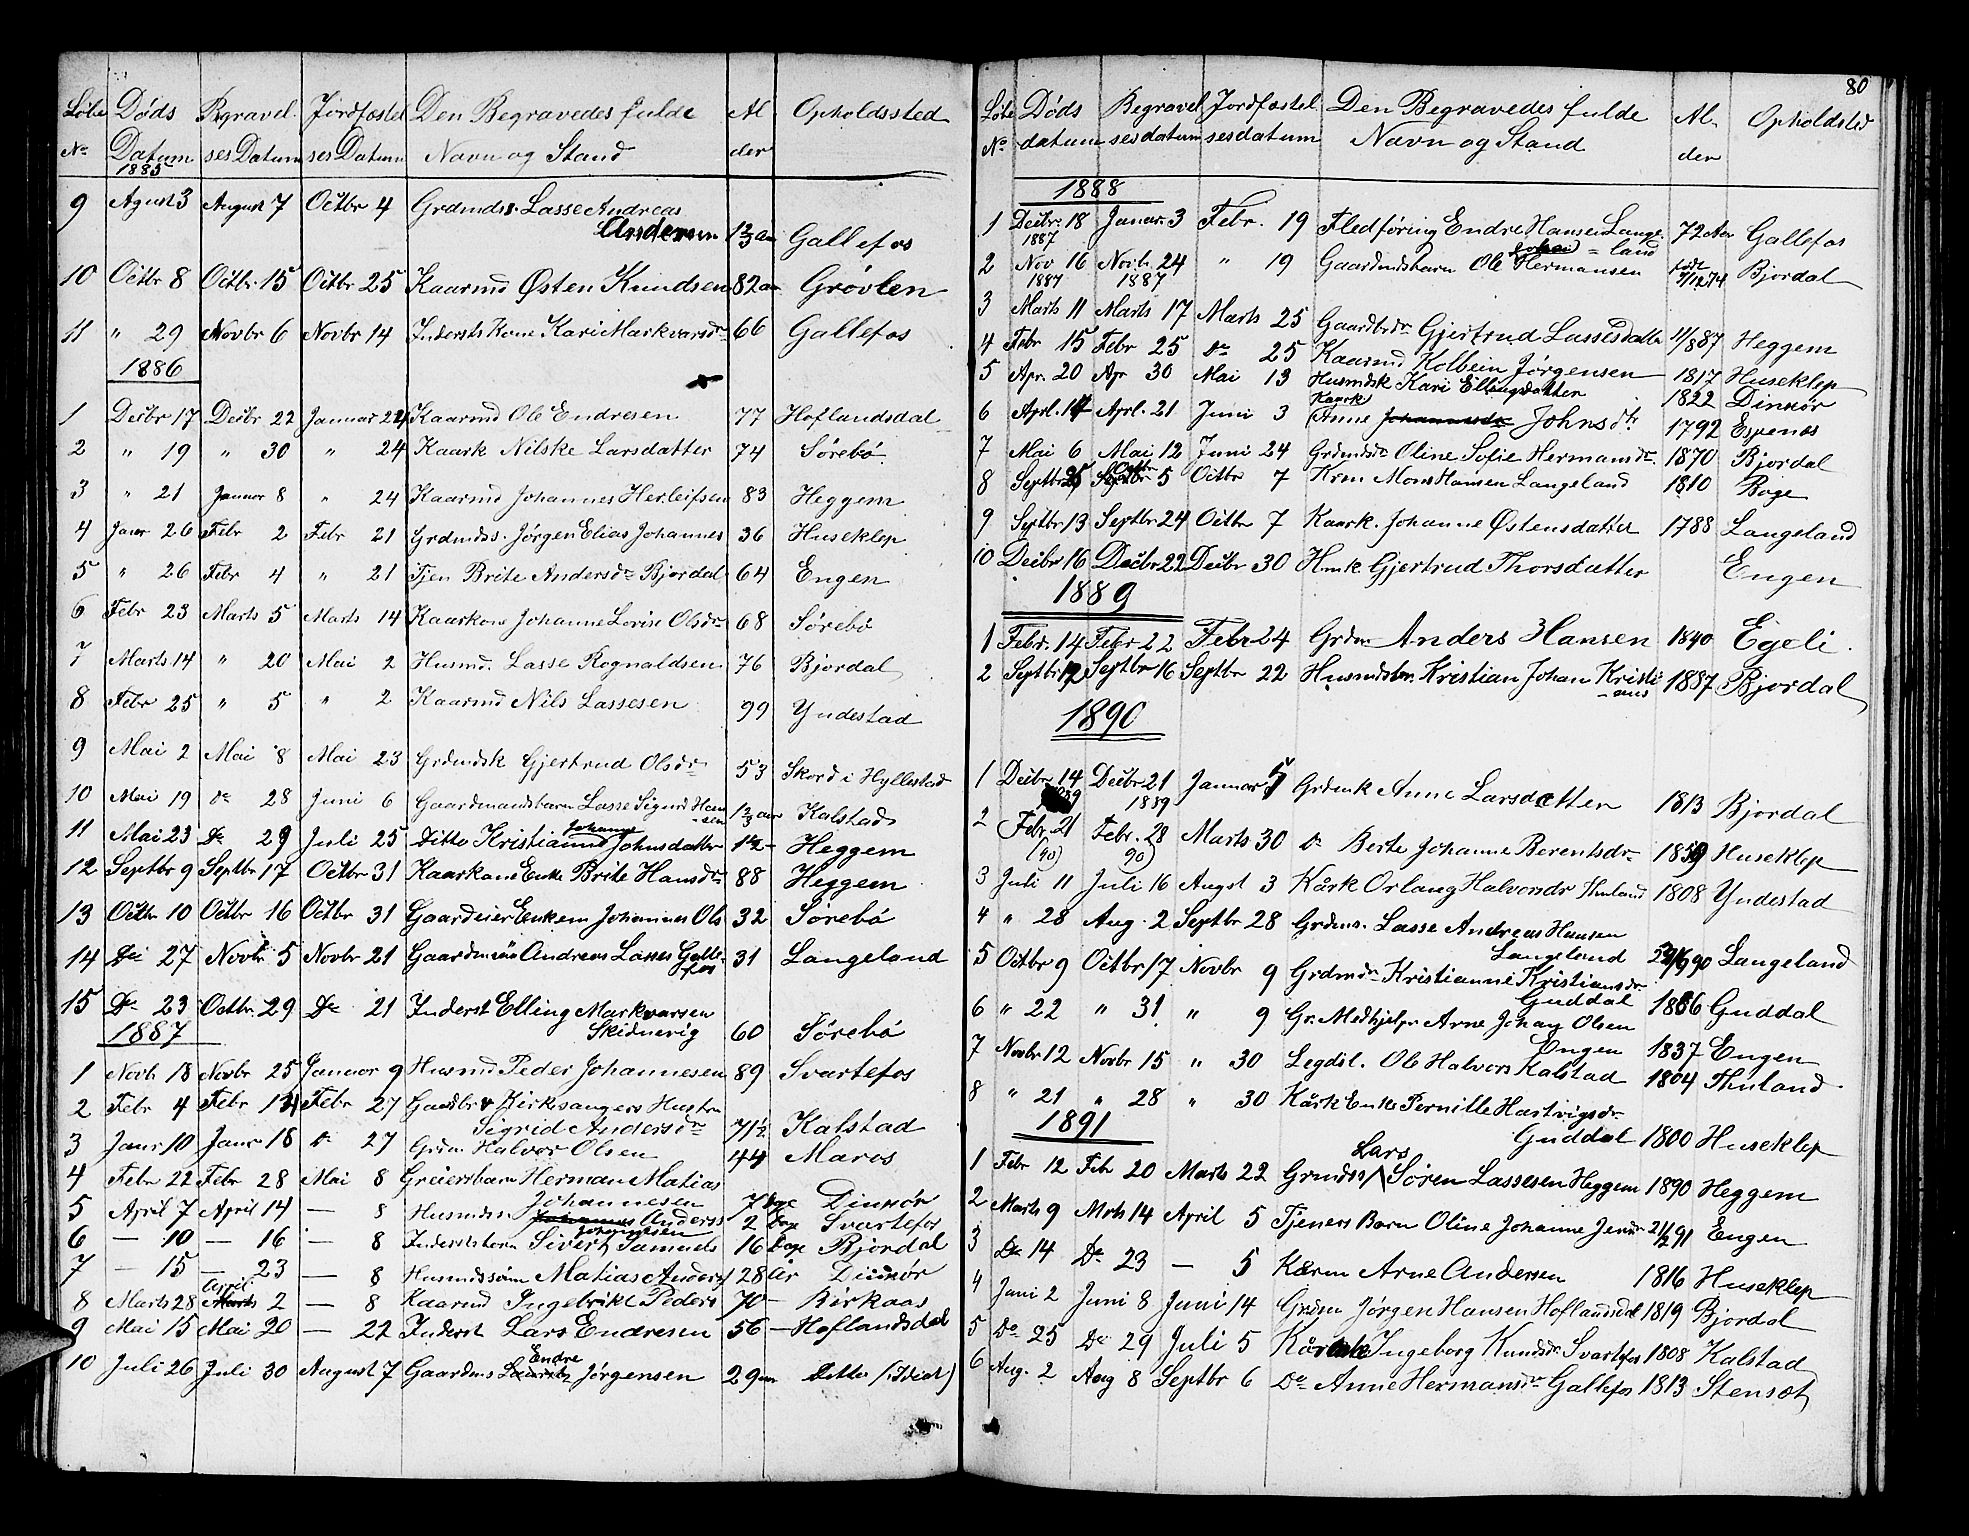 Löbe Döds Begravel Jordfæstel Den Begravedes fulde Al Opholdssted
No Datum ses Datum ses Datum Navn og Stand der
1885
9 Agust 3 August 7 Octbr 4 Grdmdss. Lasse Andreas
Andersen 12/3 aar Gallefos
10 Octbr 8 Octbr. 15 Octbr 25 Kaarmd Østen Knudsen 82 aar Grøvlen
11 " 29 Novbr 6 Novbr 14 Indersts Kone Kari Markvarsdr 66 Gallefos
1886
1 Decbr 17 Decbr 22 Januar 24 Kaarmd Ole Endresen 77 Hoflandsdal
2 " 19 " 30 " 24 Kaark Nilske Larsdatter 74 Sørebø
3 " 21 Januar 8 " 24 Kaarmd Johannes Herleifsen 83 Heggem
4 Janr 26 Febr 2 Febr 21 Grdmdss. Jørgen Elias Johannes 36 Huseklep
5 " 26 Febr 4 " 21 Tjen Brite Andersdr Bjordal 64 Engen
6 Febr 23 Marts 5 Marts 14 Kaarkone Johanne Lovise Olsdr 68 Sørebø
7 Marts 14 " 20 Mai 2 Husmd. Lasse Rognaldsen 76 Bjordal
8 Febr 25 " 5 " 2 Kaarmd Nils Lassesen 99 Yndestad
9 Mai 2 Mai 8 Mai 23 Grdmdsk Gjertrud Olsdr 53 Skord i Hyllestad
10 Mai 19 do 28 Juni 6 Gaardmandsbarn Lasse Sigurd Han
sen 12/3 aar Kalstad
11 Mai 23 Do 29 Juli 25 Ditto Kristianne Johnsdatter 1½ - Heggem
12 Septbr 9 Septbr 17 Octbr 31 Kaarkone Enke Brite Hansdr 88 Heggem
13 Octbr 10 Octbr 16 Octbr 31 Gaardeier Enkem Johannes Ols 32 Sørebø
14 Do 27 Novbr 5 Novbr 21 Gaardmsøn Andreas Lasses Galle-
fos 31 Langeland
15 Do 23 Octbr. 29 Do 21 Inderst Elling Markvarsen
Skidnerig 60 Sørebø
1887
1 Novb 18 Novbr 25 Januar 9 Husmd Peder Johannesen 89 Svartefos
2 Febr 4 Febr 14 Febr 27 Gaardbr & Kirkesangers Hustru
Sigrid Andersdr 71½ Kalstad
3 Janr 10 Janr 18 do 27 Grdm Halvor Olsen 44 Maros
4 Febr 22 Febr 28 Mai 8 Greiersbarn Herman Matias
Johannesen 7 Dage Dinnør
5 April 7 April 14 — 8 Husmdss Johannes Anderss 2 Dage Svartefos
Johannesen
6 — 10 — 16 — 8 Inderstsbarn Sivert Samuels 16 Dage Bjordal
7 — 15 — 23 — 8 Husmdssøn Matias Anders 28 Aar Dinnør
April
8 Marts 28 Marts 2 — 8 Kaarmd Ingebrikt Peders 70 — Birkaas
9 Mai 15 Mai 20 — 22 Inderst Lars Endresen 56 — Hoflandsdal
Endre
10 Juli 26 Juli 30 August 7 Gaardms Laurits Jørgensen 29 aar Ditto (Idiot)
80
Löbe Döds Begravel Jordfæstel Den Begravedes fulde Al- Opholdsted
No datum sesdatum sesdatum Navn og Stand der
1888
1 Decbr. 18 Januar. 3 Febr. 19 Fledføring Endre Hansen Lange- 72 Aar Gallefos
1887 = land
2 Nov 16 Novb. 24 " 19 Gaardmdsbarn Ole Hermansen født 74 Bjordal
1887 1887
3 Marts 11 Marts 17 Marts 25 Gaardbrdr Gjertrud Lassesdatter 11/887 Heggem
4 Febr 15 Febr 25 do 25 Kaarmd Kolbein Jørgensen 1817 Huseklep
5 Apr. 20 Apr 30 Mai 13 Husmdsk Kari Ellingsdatter 1822 Dinnør
Kaark
6 Aprl. 14 Aprl. 21 Juni 3 Anne Johannesdr Johnsdtr 1792 Espenes
7 Mai 6 Mai 12 Juni 24 Grdmdsdr Oline Sofie Hermansdr. 1870 Bjordal
Octbr
8 Septbr 25 Septbr 5 Octbr 7 Krm Mons Hansen Langeland 1810 Boge
9 Septbr 13 Septbr 24 Octbr 7 Kaark. Johanne Østensdatter 1788 Langeland
10 Decbr 16 Decbr 22 Decbr 30 Hmk Gjertrud Thorsdatter Engen
1889
1 Febr. 14 Febr 22 Febr 24 Grdm Anders Hansen 1840 Egeli.
2 Septbr 12 Septbr 16 Septbr 22 Husmdsbr. Kristian Johan Kristi 1887 Bjordal
1890
1 Decbr 14 Decbr 21 Januar 5 Grdmk Anne Larsdatter 1813 Bjordal
1889 1889
2 Febr. 21 Febr. 28 Marts 30 do Berte Johanne Berentsdr 1859 Huseklep
(90) 90)
3 Juli 11 Juli 16 Augst 3 Kårk Orlaug Halvorsdr Thuland 1808 Yndestad
4 " 28 Aug. 2 Septbr 28 Grdms. Lasse Andreas Hansen
Langeland 90 Langeland
5 Octbr 9 Octbr 17 Novbr 9 Grdmdr Kristianne Kristiansdr
Guddal 1866 Guddal
6 " 22 " 31 " 9 Gr. Medhjelpr Arne Johan Olsen
Engen 1837 Engen
7 Novbr 12 Novbr 15 " 30 Legdsl. Ole Halvors Kalstad 1804 Thuland
8 " 21 " 28 " 30 Kårk Enke Pernille Hartvigsdr
Guddal 1800 Huseklep
1891
Lars
1 Febr 12 Feb 20 Marts 22 Grmdss Søren Lassesen Heggem 1890 Heggem
2 Marts 9 Mrts 14 April 5 Tjeners Barn Oline Johanne Jensdr 21/2 91 Engen
3 Do 14 Do 23 — 5 Karm Arne Andersen 1816 Huseklep
4 Juni 2 Juni 8 Juni 14 Grdm Jørgen Hansen Hoflandsdal 1819 Bjordal
5 Do 25 Do 29 Juli 5 Kårenke Ingeborg Knudsdr Svartefos 1808 Kalstad
6 Aug. 2 Aug 8 Septbr 6 Do Anne Hermansdr Gallefos 1813 Stensæt